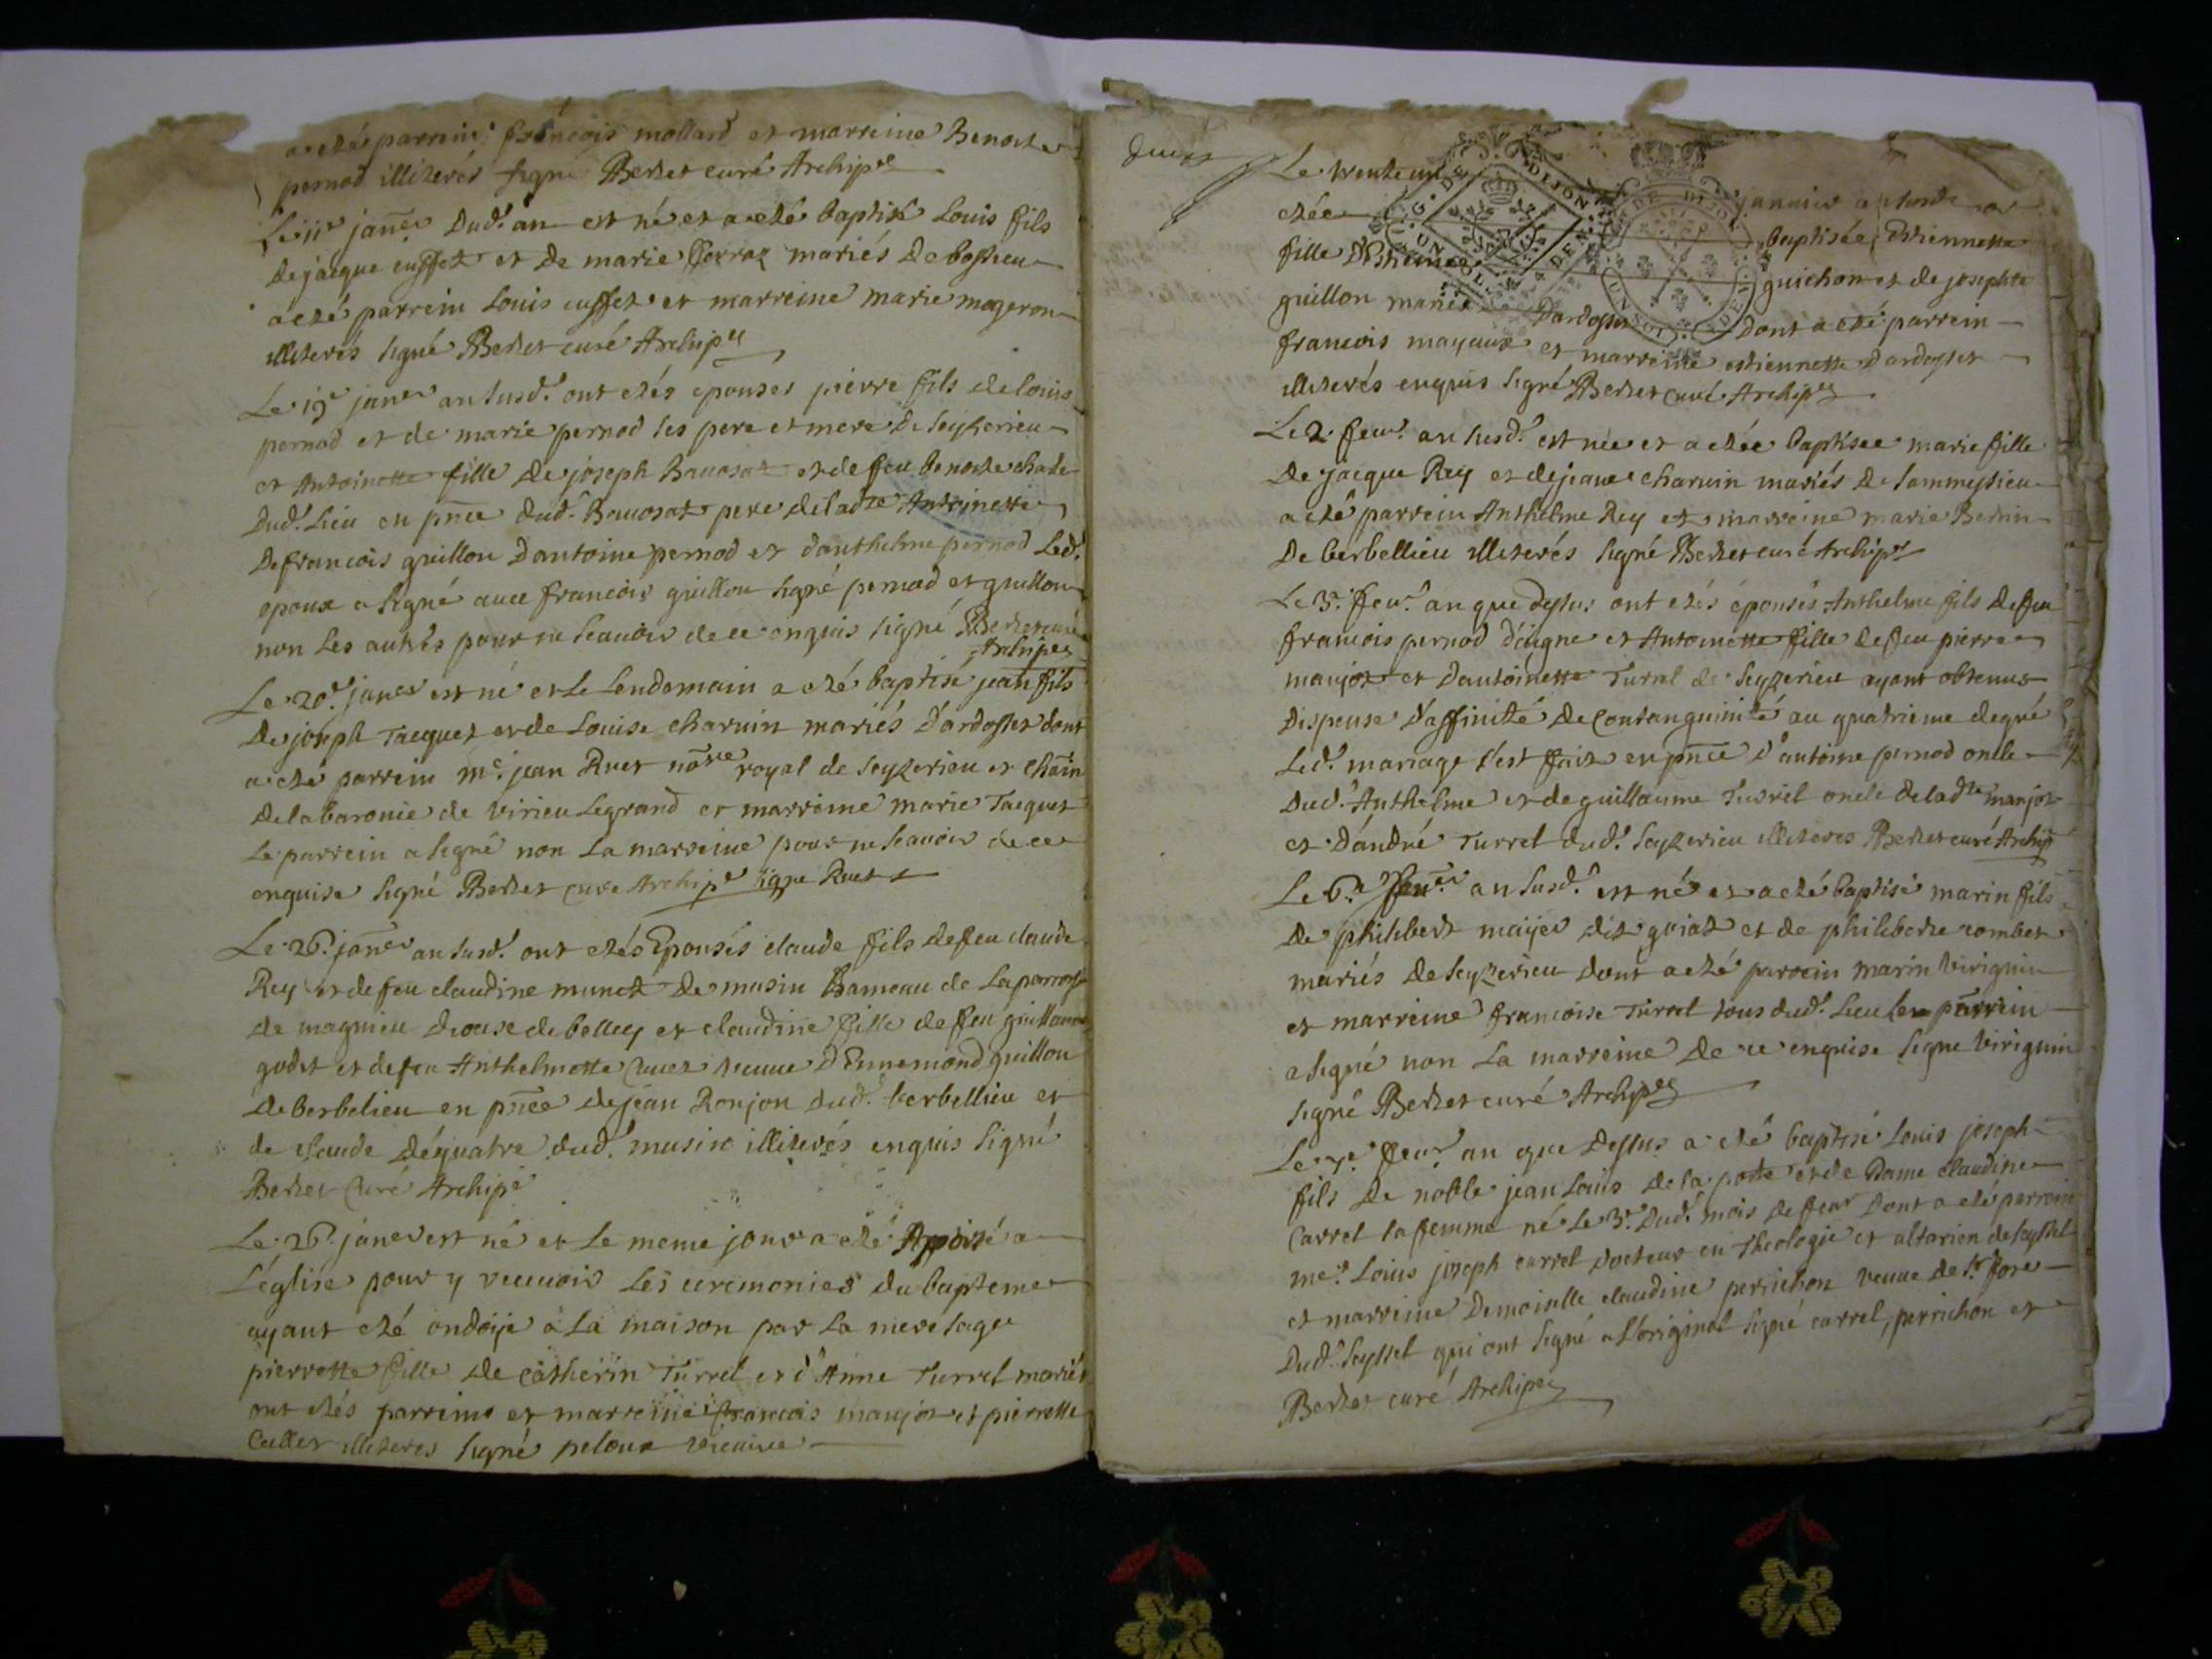 a eté parrein françois mollard et marreine Benoite
pernod illiterés signé Berlet curé Archip.e
Le 11e janer dud.t an est né et a eté baptisé Louis fils
de jacque cuffet et de marie ferraz mariés de bossieu
a eté parrein Louis cuffet et marreine marie mogeron
illiterés signé Berlet curé Archip.e
Le 19e janer an susd.t ont etés epousés pierre fils de louis
pernod et de marie pernod ses pere et mere de seyzerieu
et Antoinette fille de joseph Bavosat et de feu benoite
dud.t Lieu en pnce dud.t Bavosat pere de ladte Antoinette
de francois guillon d'antoine pernod et d'anthelme pernod Led.t
epoux a signé avec francois guillon signé pernod et guillon
non Les autres pour ne scavoir de ce enquis signé Berlet curé
Archipe
Le 20e janer est né et le Lendemain a eté baptisé jean fils
de joseph Tacquet et de Louise charvin mariés d'ardosset dont
a eté parrein me. jean Ruet nore royal de seyzerieu et chain
de la baronie de virieu Legrand et marreine marie Tacquet
Le parrein a signé non La marreine pour ne scavoir de ce
enquise signé Berlet cure Archip.e signé Ruet
Le 26e janer an susd.t ont etés Epousés claude fils de feu claude
Rey et de feu claudine munet de musin hameau de La parroisse
de magnieu diocese de belley et claudine fille de feu guillaume
godet et de feu Anthelmette veuve d'Ennemond guillon
de berbelieu en pnce de jean Ronjon dud.t berbellieu et
de claude déquatre dud.t musin illiterés enquis signé
Berlet Curé Archipe
Le 26e janer est né et Le meme jour a eté Apporté a
L'église pour y recevoir Les ceremonies du bapteme
ayant eté ondoÿe à La maison par La mere sage
pierrette fille de catherin Turrel et d'Anne Turrel mariés
ont etés parreins et marreine francois maujot et pierrette
Callet illiteres signé peloux vicaire
Le trente un janvier a
etée baptisée Estiennette
fille d'Estienne guichon et de josephte
guillon mariés D'ardosset dont a eté parrein
francois mayaux et marreine estiennette d'ardosset
illiterés enquis signé Berlet Curé Archip.e
Le 2 fevr. an susd.t est née et a etée baptisee marie fille
de jacque Rey et de jeane charvin mariés de sammeysieu
a eté parrein Anthelme Rey et marreine marie Bertin
de berbellieu illiterés signé Berlet curé Archip.e
Le 3e. fevr. an que dessus ont etés épousés Anthelme fils de feu
francois pernod d'aigne et Antoinette fille de feu pierre
maujot et d'antoinette Turrel de seyzerieu ayant obtenus
Dispense d'affinité de Consanguinité au quatrieme degré
Led.t mariage s'est fait en pnce d'antoine pernod oncle
dud.t Anthelme et de guillaume Turrel oncle de ladte maujot
et d'andré Turrel dud.t seyzerieu illiteres Berlet curé Archip
Le 6e fevr. an susd.t est né et a eté baptisé marin fils
de philibert maijer dit goiat et de philiberte combet
mariés de seyzerieu dont a eté parrein marin viriguin
et marreine francoise Turrel tous dud.t Lieu Le parrein
a signé non La marreine de ce enquise signe viriguin
signé Berlet curé Archip.e
Le 7e. fevr. an que dessus a eté baptisé Louis joseph
fils de noble jean Louis de la poste et de Dame claudine
Carrel sa femme né Le 3e. dud.t mois de fevr dont a eté perrein
mre. Louis joseph carrel docteur en theologie et altarien de seyssel
et marreine Demoiselle claudine perrichon veuve de sr. fore
dud.t seyssel qui ont signé a L'original signé carrel, perrichon et
Berlet curé Archipe